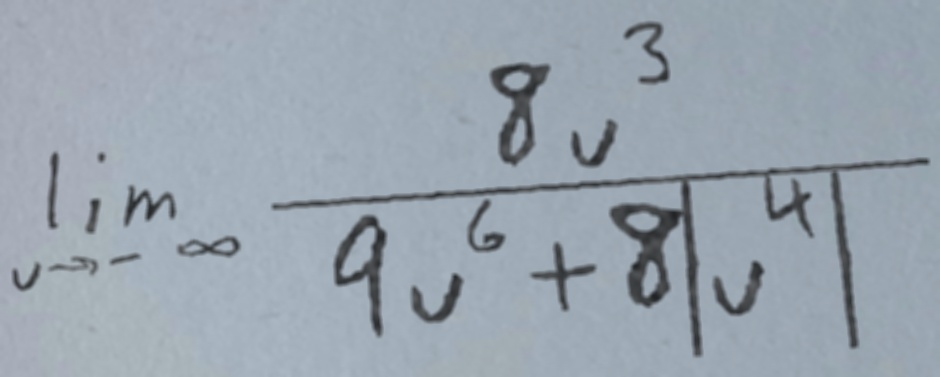 \lim_{v \to -\infty} \frac{8v^3}{9v^6 + 8|v^4|}